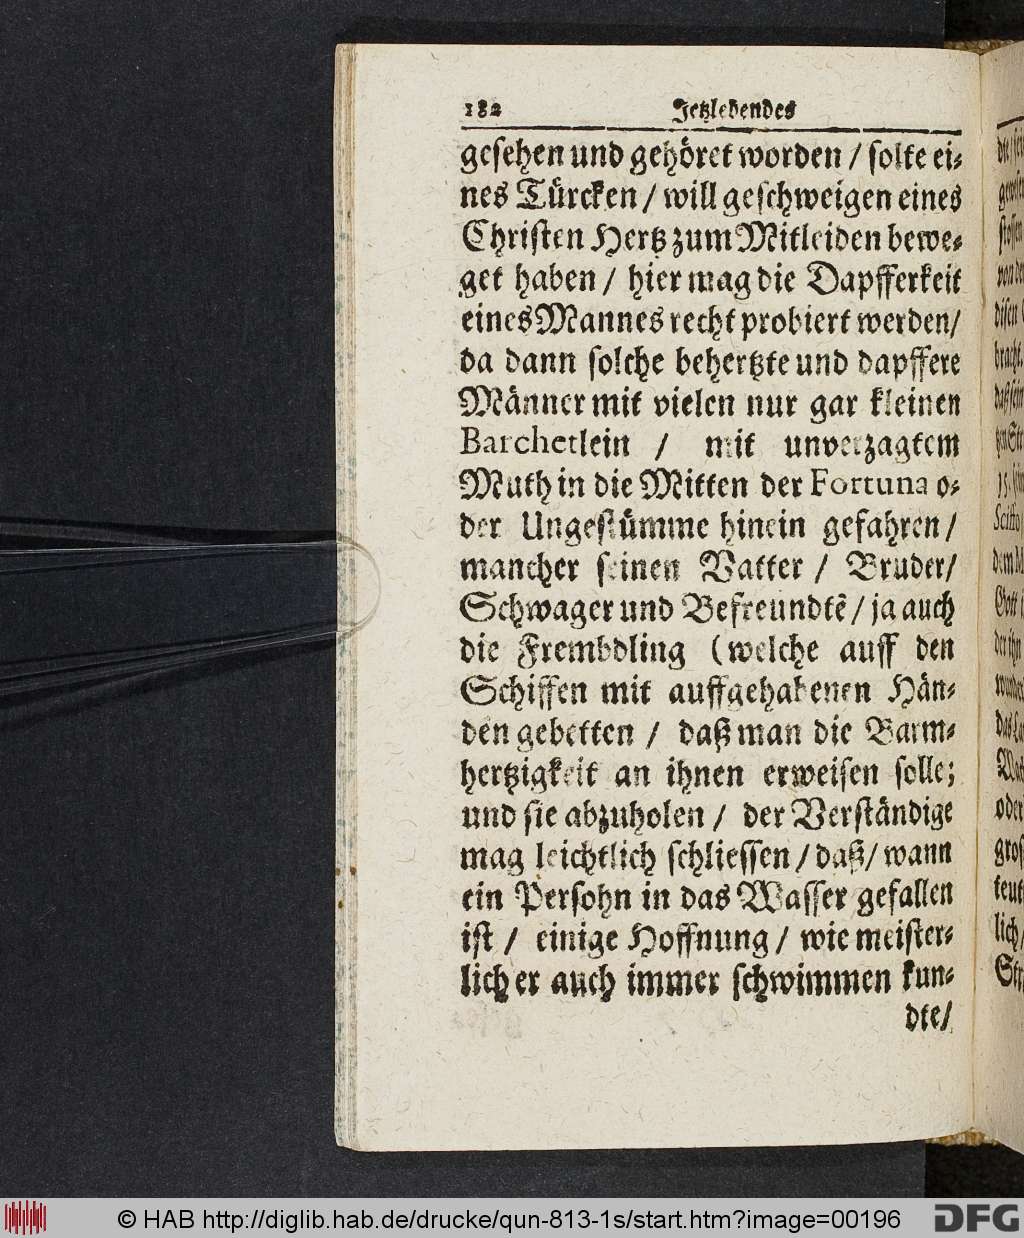 182 Jetzlebendes
gesehen und gehöret worden / solte ei-
nes Türcken / will geschweigen eines
Christen Hertz zum Mitleiden bewe-
get haben / hier mag die Dapfferkeit
eines Mannes recht probiert werden/
da dann solche behertzte und dapffere
Männer mit vielen nur gar kleinen
Barchetlein / mit unverzagtem
Muth in die Mitten der Fortuna o-
der Ungestümme hinein gefahren /
mancher seinen Vatter / Bruder/
Schwager und Befreundtē / ja auch
die Frembdling (welche auff den
Schiffen mit auffgehabenen Hän-
den gebetten / daß man die Barm-
hertzigkeit an ihnen erweisen solle;
und sie abzuholen / der Verständige
mag leichtlich schliessen / daß / wann
ein Persohn in das Wasser gefallen
ist / einige Hoffnung / wie meister-
lich er auch immer schwimmen kun-
dte/
© HAB http://diglib.hab.de/drucke/qun-813-1s/start.htm?image=00196
DFG